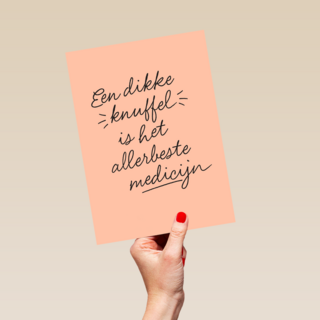 Een dikke
knuffel
is het
allerbeste
medicijn